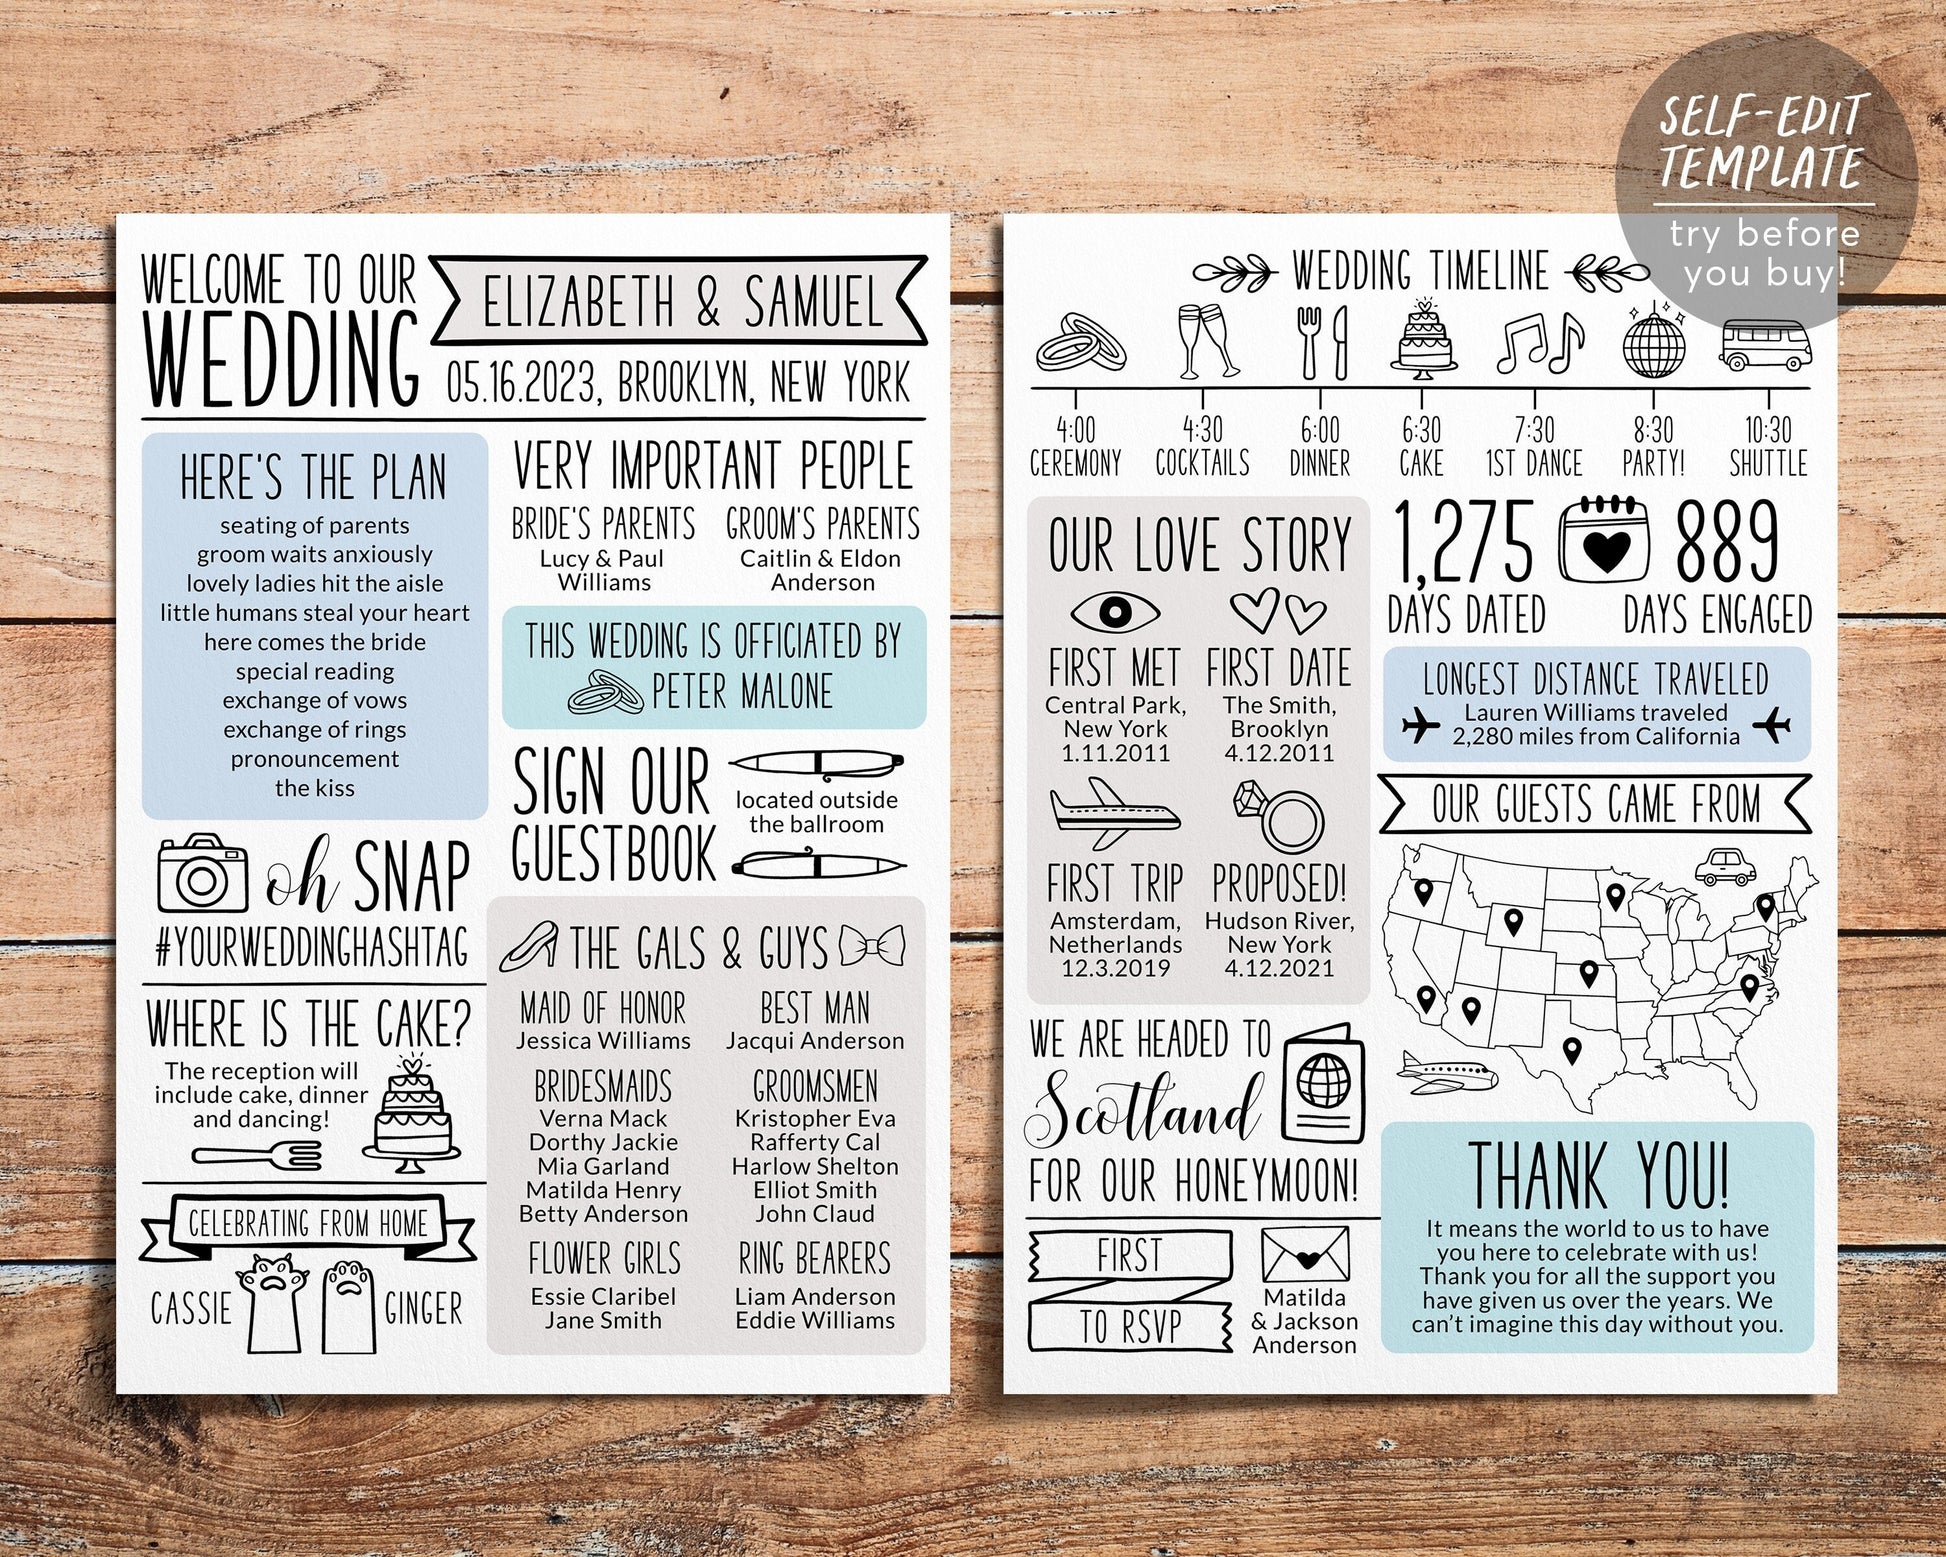 SELF-EDIT
TEMPLATE
try before
you buy!
WELCOME TO OUR
WEDDING
ELIZABETH & SAMUEL
05.16.2023, BROOKLYN, NEW YORK
HERE'S THE PLAN
seating of parents
groom waits anxiously
lovely ladies hit the aisle
little humans steal your heart
here comes the bride
special reading
exchange of vows
exchange of rings
pronouncement
the kiss
oh SNAP
#YOURWEDDINGHASHTAG
WHERE IS THE CAKE?
The reception will
include cake, dinner
and dancing!
CELEBRATING FROM HOME
CASSIE
GINGER
VERY IMPORTANT PEOPLE
BRIDE'S PARENTS
Lucy & Paul
Williams
GROOM'S PARENTS
Caitlin & Eldon
Anderson
THIS WEDDING IS OFFICIATED BY
PETER MALONE
SIGN OUR
GUESTBOOK
located outside
the ballroom
THE GALS & GUYS
MAID OF HONOR
Jessica Williams
BEST MAN
Jacqui Anderson
BRIDESMAIDS
Verna Mack
Dorthy Jackie
Mia Garland
Matilda Henry
Betty Anderson
GROOMSMEN
Kristopher Eva
Rafferty Cal
Harlow Shelton
Elliot Smith
John Claud
FLOWER GIRLS
Essie Claribel
Jane Smith
RING BEARERS
Liam Anderson
Eddie Williams
WEDDING TIMELINE
4:00
CEREMONY
4:30
COCKTAILS
6:00
DINNER
6:30
CAKE
7:30
1ST DANCE
8:30
PARTY!
10:30
SHUTTLE
OUR LOVE STORY
FIRST MET
Central Park,
New York
1.11.2011
FIRST DATE
The Smith,
Brooklyn
4.12.2011
FIRST TRIP
Amsterdam,
Netherlands
12.3.2019
PROPOSED!
Hudson River,
New York
4.12.2021
WE ARE HEADED TO
Scotland
FOR OUR HONEYMOON!
FIRST
TO RSVP
Matilda
& Jackson
Anderson
1,275
DAYS DATED
889
DAYS ENGAGED
LONGEST DISTANCE TRAVELED
Lauren Williams traveled
2,280 miles from California
OUR GUESTS CAME FROM
THANK YOU!
It means the world to us to have
you here to celebrate with us!
Thank you for all the support you
have given us over the years. We
can't imagine this day without you.